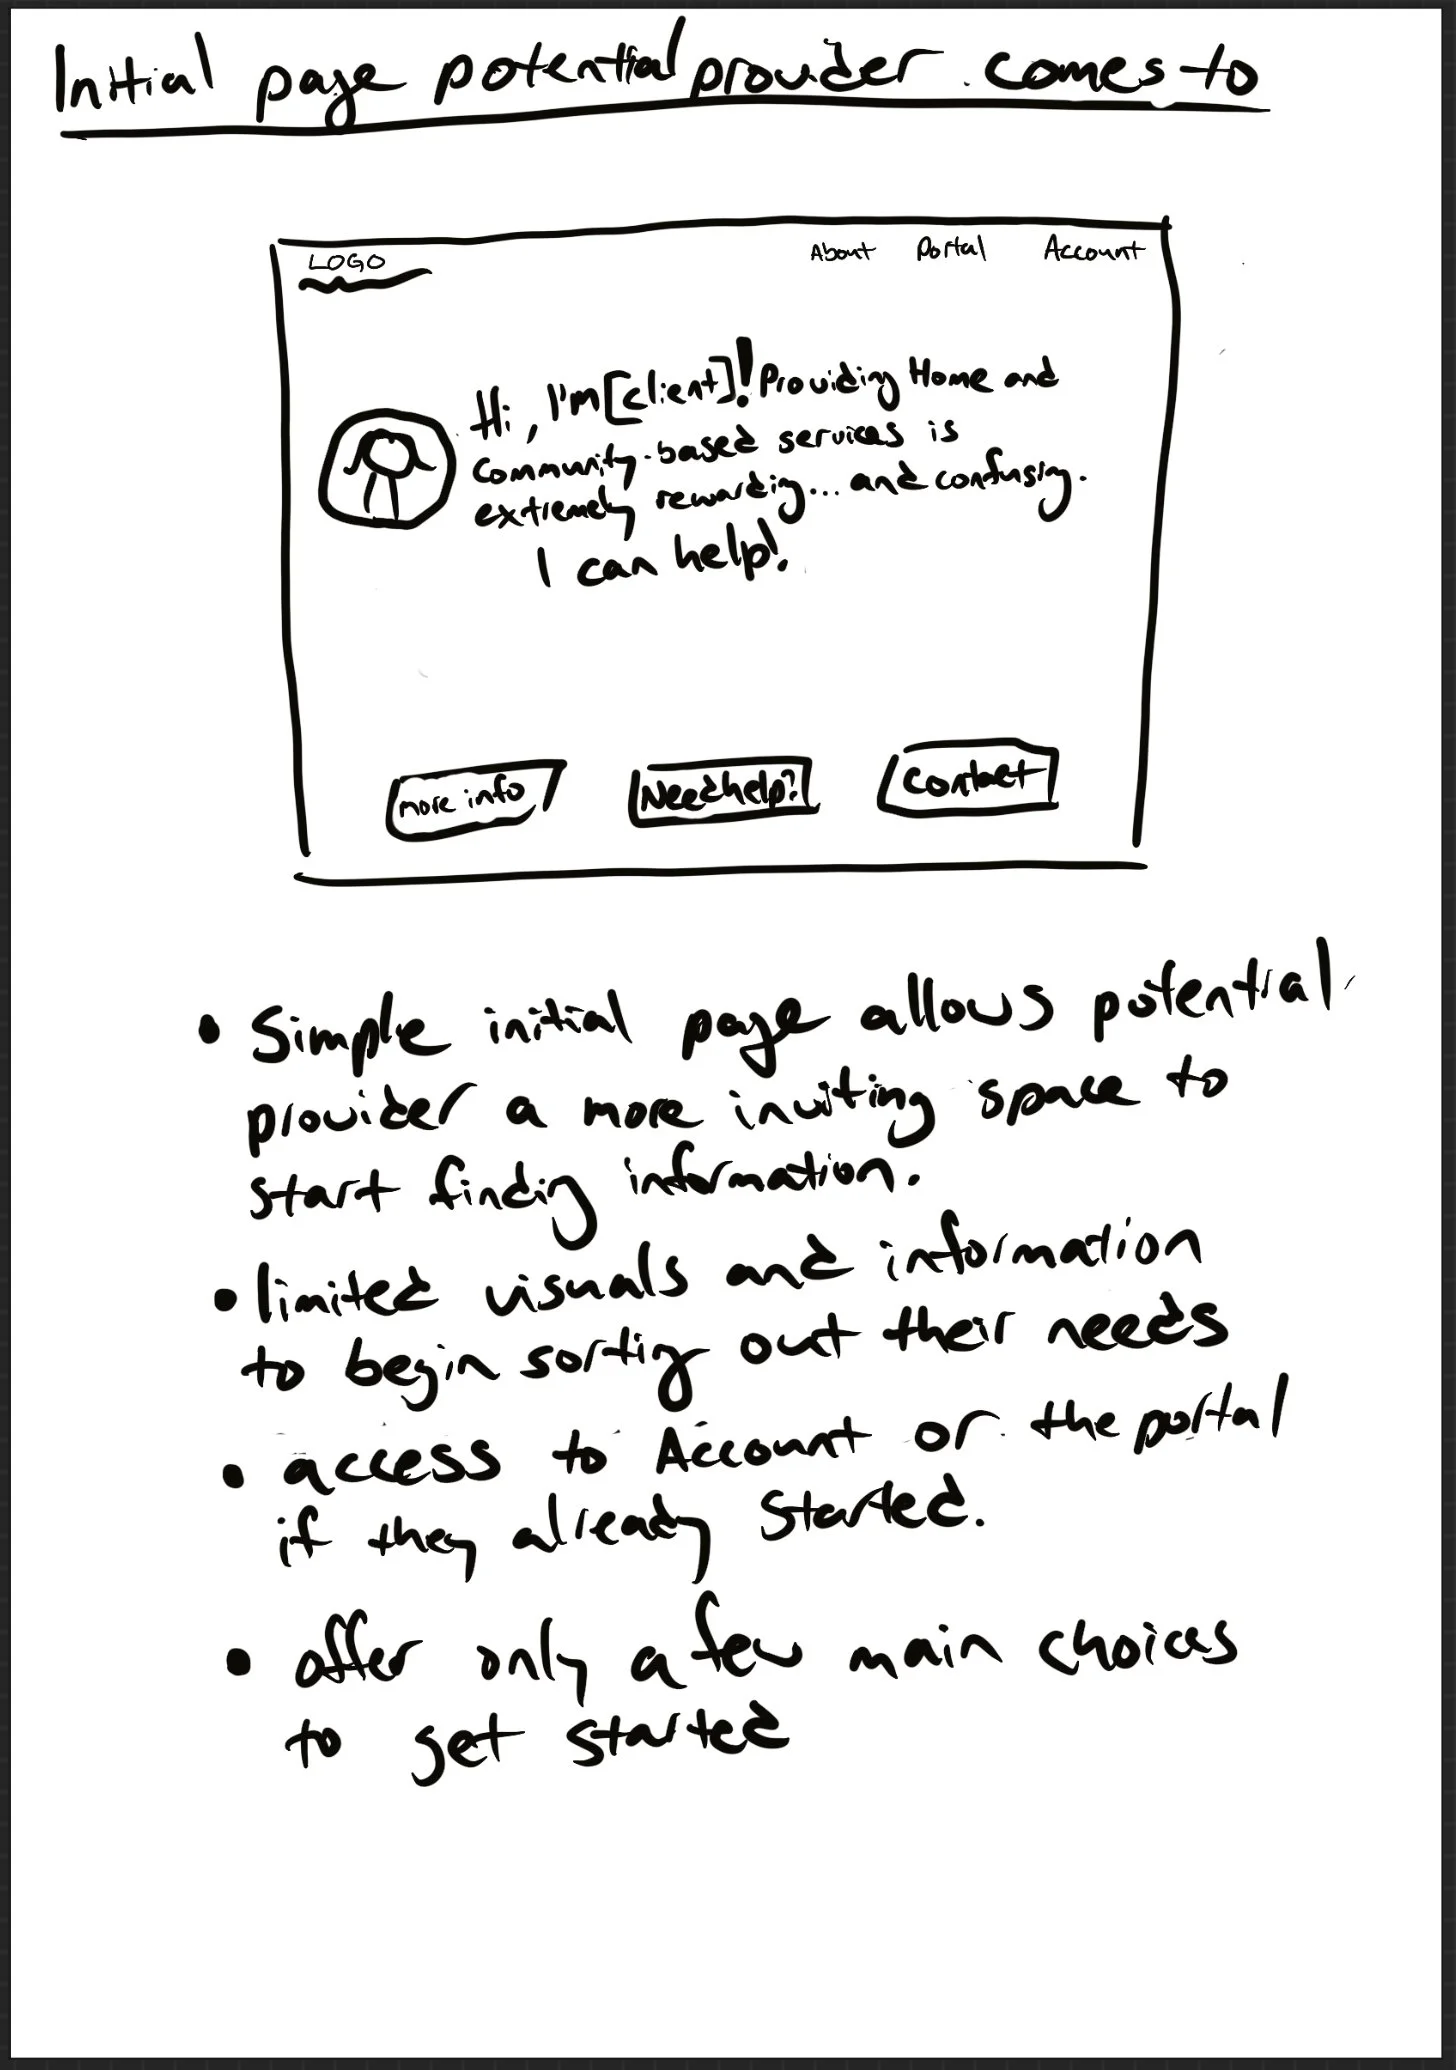 Initial page potential provider comes to
LOGO
About Portal Account
Hi, I'm [client]! Providing Home and
community-based services is
extremely rewarding... and confusing.
I can help!
more info
Need help?
Contact
• Simple initial page allows potential
provider a more inviting space to
start finding information.
• limited visuals and information
to begin sorting out their needs
• access to Account or the portal
if they already started.
• offer only a few main choices
to get started